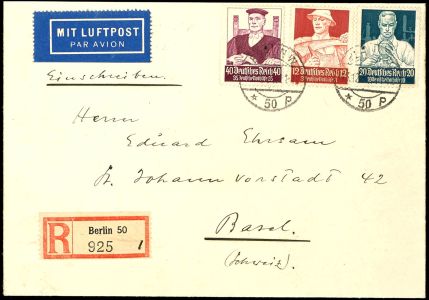 MIT LUFTPOST
PAR AVION
40 Deutsches Reich 40
12 Deutsches Reich 12
20 Deutsches Reich 20
* 50 P
* 50 P
Einschreiben.
Herrn
Eduard Ehrsam
St. Johann vorstadt 42
Basel.
(Schweiz).
R
Berlin 50
925 l